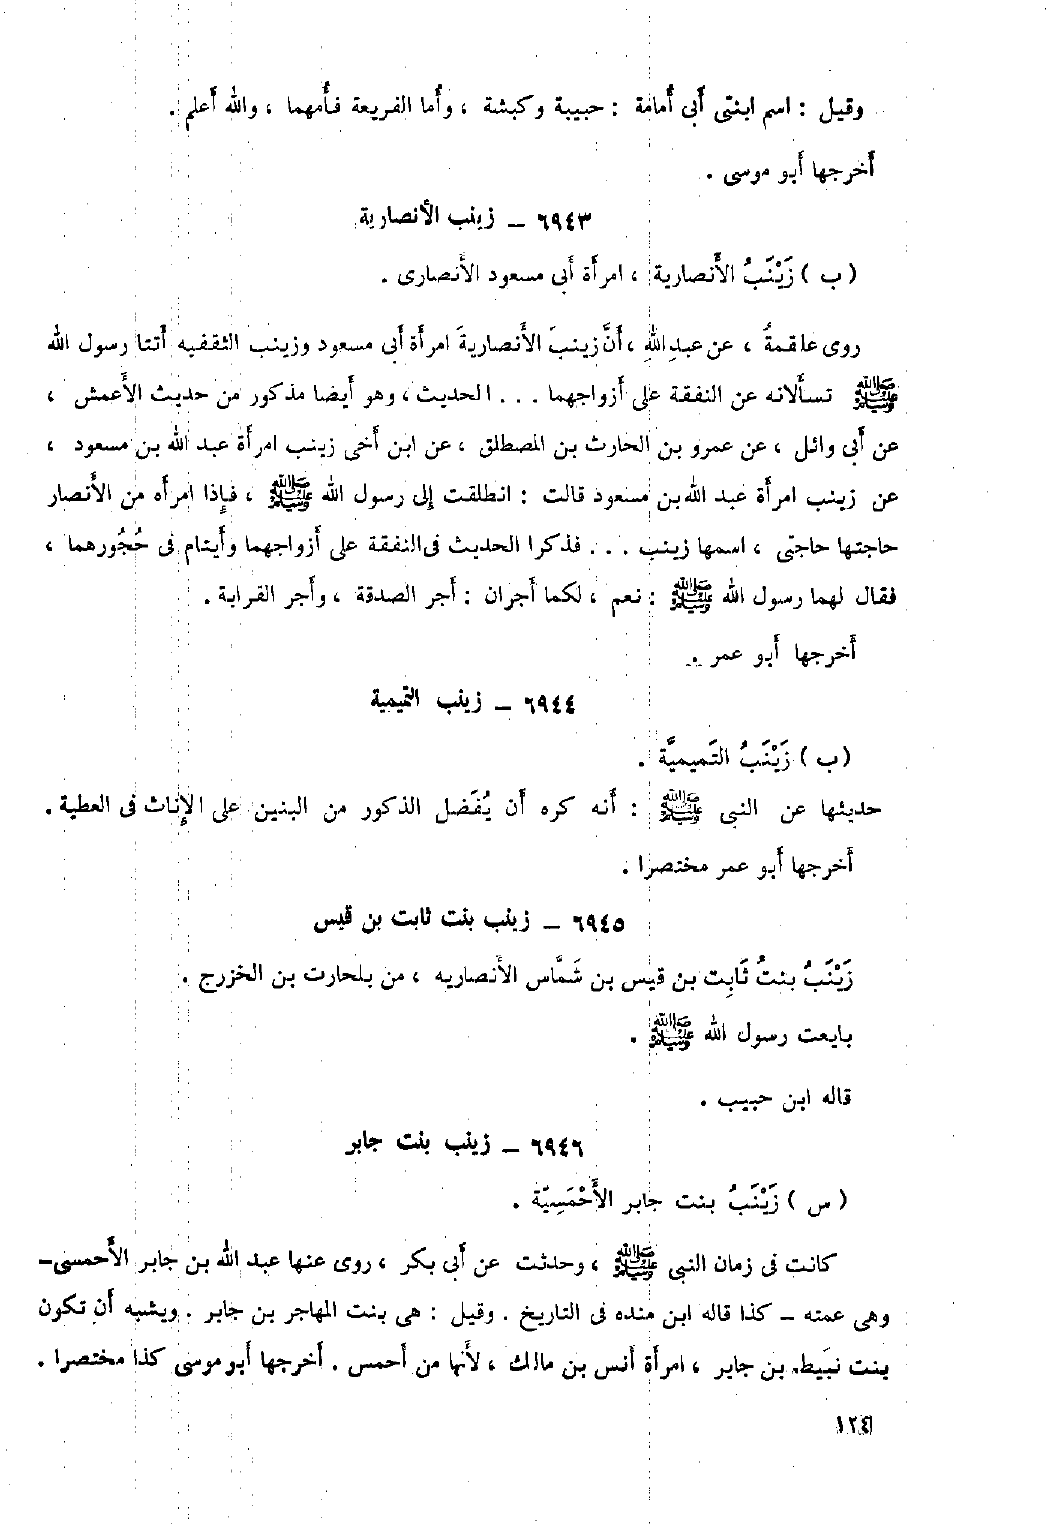 وقيل : اسم ابنتى أَبى أُمامة : حبيبة وكبشة ، وأَما الفريعة فأُمهما ، والله أَعلم .
أَخرجها أَبو موسى .
٦٩٤٣ – زينب الأنصارية
( ب ) زَيْنَبُ الأَنصارية ، امرأَة أَبى مسعود الأَنصارى .
روى علقمةُ ، عن عبدِ اللهِ ، أَنَّ زينبَ الأَنصاريةَ امرأَة أَبى مسعود وزينب الثقفيه أَتتا رسول الله
ﷺ تسأَلانه عن النفقة على أَزواجهما . . . الحديث ، وهو أَيضا مذكور من حديث الأَعمش ،
عن أَبى وائل ، عن عمرو بن الحارث بن المصطلق ، عن ابن أَخى زينب امرأَة عبد الله بن مسعود ،
عن زينب امرأَة عبد الله بن مسعود قالت : انطلقت إِلى رسول الله ﷺ ، فإِذا امرأَه من الأَنصار
حاجتها حاجتى ، اسمها زينب . . . فذكرا الحديث فى النفقة على أَزواجهما وأَيتام فى حُجُورهما ،
فقال لهما رسول الله ﷺ : نعم ، لكما أَجران : أَجر الصدقة ، وأَجر القرابة .
أَخرجها أَبو عمر .
٦٩٤٤ – زينب التميمية
( ب ) زَيْنَبُ التَميميَّة .
حديثها عن النبى ﷺ : أَنه كره أَن يُفَضل الذكور من البنين على الإِناث فى العطية .
أَخرجها أَبو عمر مختصرا .
٦٩٤٥ – زينب بنت ثابت بن قيس
زَيْنَبُ بنتُ ثَابِت بن قيس بن شَمَّاس الأَنصاريه ، من بلحارت بن الخزرج .
بايعت رسول الله ﷺ .
قاله ابن حبيب .
٦٩٤٦ – زينب بنت جابر
( س ) زَيْنَبُ بنت جابر الأَحْمَسِيّة .
كانت فى زمان النبى ﷺ ، وحدثت عن أَبى بكر ، روى عنها عبد الله بن جابر الأَحمسى –
وهى عمته – كذا قاله ابن منده فى التاريخ . وقيل : هى بنت المهاجر بن جابر . ويشبه أَن تكون
بنت نبَيط بن جابر ، امرأَة أَنس بن مالك ، لأَنها من أَحمس . أَخرجها أَبو موسى كذا مختصرا .
١٢٤